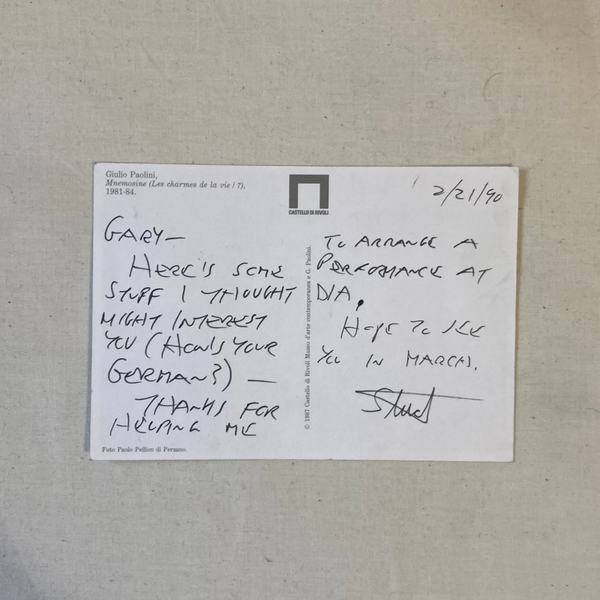 Giulio Paolini,
Mnemosine (Les charmes de la vie / 7),
1981-84.
CASTELLO DI RIVOLI
2/21/90
GARY—
HERE'S SOME
STUFF I THOUGHT
MIGHT INTEREST
YOU (HOW'S YOUR
GERMAN?) —
THANKS FOR
HELPING ME
TO ARRANGE A
PERFORMANCE AT
DIA.
HOPE TO SEE
YOU IN MARCH.
© 1987 Castello di Rivoli Museo d'arte contemporanea e G. Paolini.
Foto Paolo Pellion di Persano.